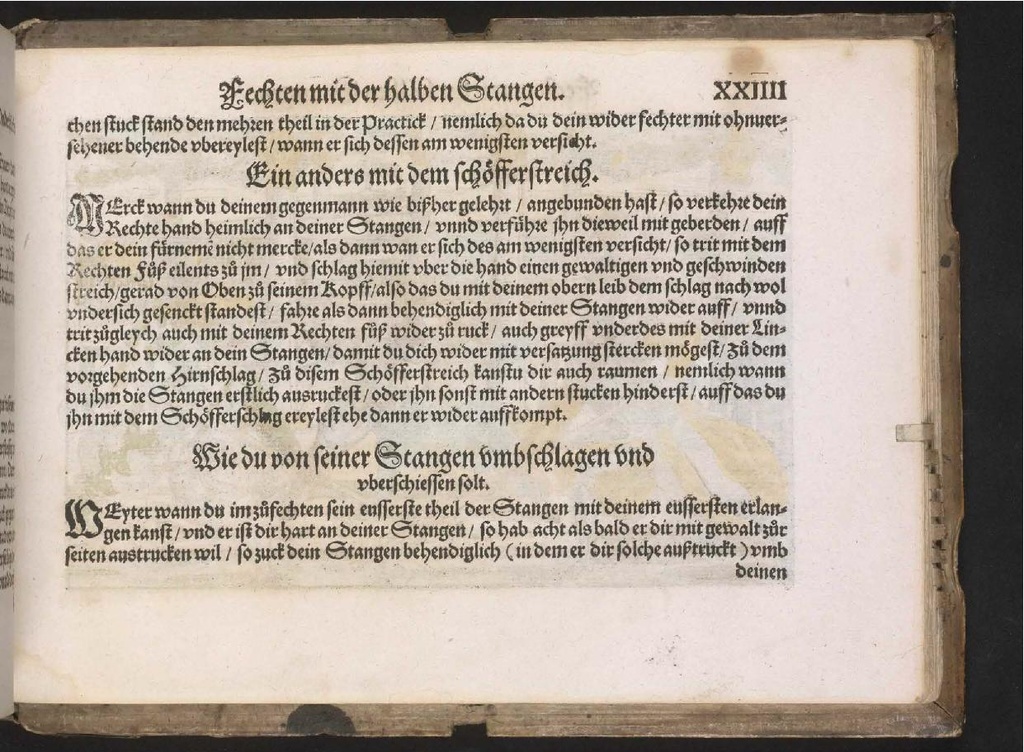 Fechten mit der halben Stangen. XXIIII
chen stuck stand den mehren theil in der Practick / nemlich da du dein wider fechter mit ohnuer-
sehener behende vbereylest / wann er sich dessen am wenigsten versicht.
Ein anders mit dem schöfferstreich.
MErck wann du deinem gegenmann wie bißher gelehrt / angebunden hast / so verkehre dein
Rechte hand heimlich an deiner Stangen / vnnd verführe jhn dieweil mit geberden / auff
das er dein fürnemē nicht mercke / als dann wan er sich des am wenigsten versicht / so trit mit dem
Rechten Fůß eilents zů jm / vnd schlag hiemit vber die hand einen gewaltigen vnd geschwinden
streich / gerad von Oben zů seinem Kopff / also das du mit deinem obern leib dem schlag nach wol
vndersich gesenckt standest / fahre als dann behendiglich mit deiner Stangen wider auff / vnnd
trit zůgleych auch mit deinem Rechten fůß wider zů ruck / auch greyff vnderdes mit deiner Lin-
cken hand wider an dein Stangen / damit du dich wider mit versatzung stercken mögest / Zů dem
vorgehenden Hirnschlag / Zů disem Schöfferstreich kanstu dir auch raumen / nemlich wann
du jhm die Stangen erstlich ausruckest / oder jhn sonst mit andern stucken hinderst / auff das du
jhn mit dem Schöfferschlag ereylest ehe dann er wider auffkompt.
Wie du von seiner Stangen vmbschlagen vnd
vberschiessen solt.
WEyter wann du im zůfechten sein eusserste theil der Stangen mit deinem eussersten erlan-
gen kanst / vnd er ist dir hart an deiner Stangen / so hab acht als bald er dir mit gewalt zůr
seiten austrucken wil / so zuck dein Stangen behendiglich ( in dem er dir solche außtruckt ) vmb
deinen